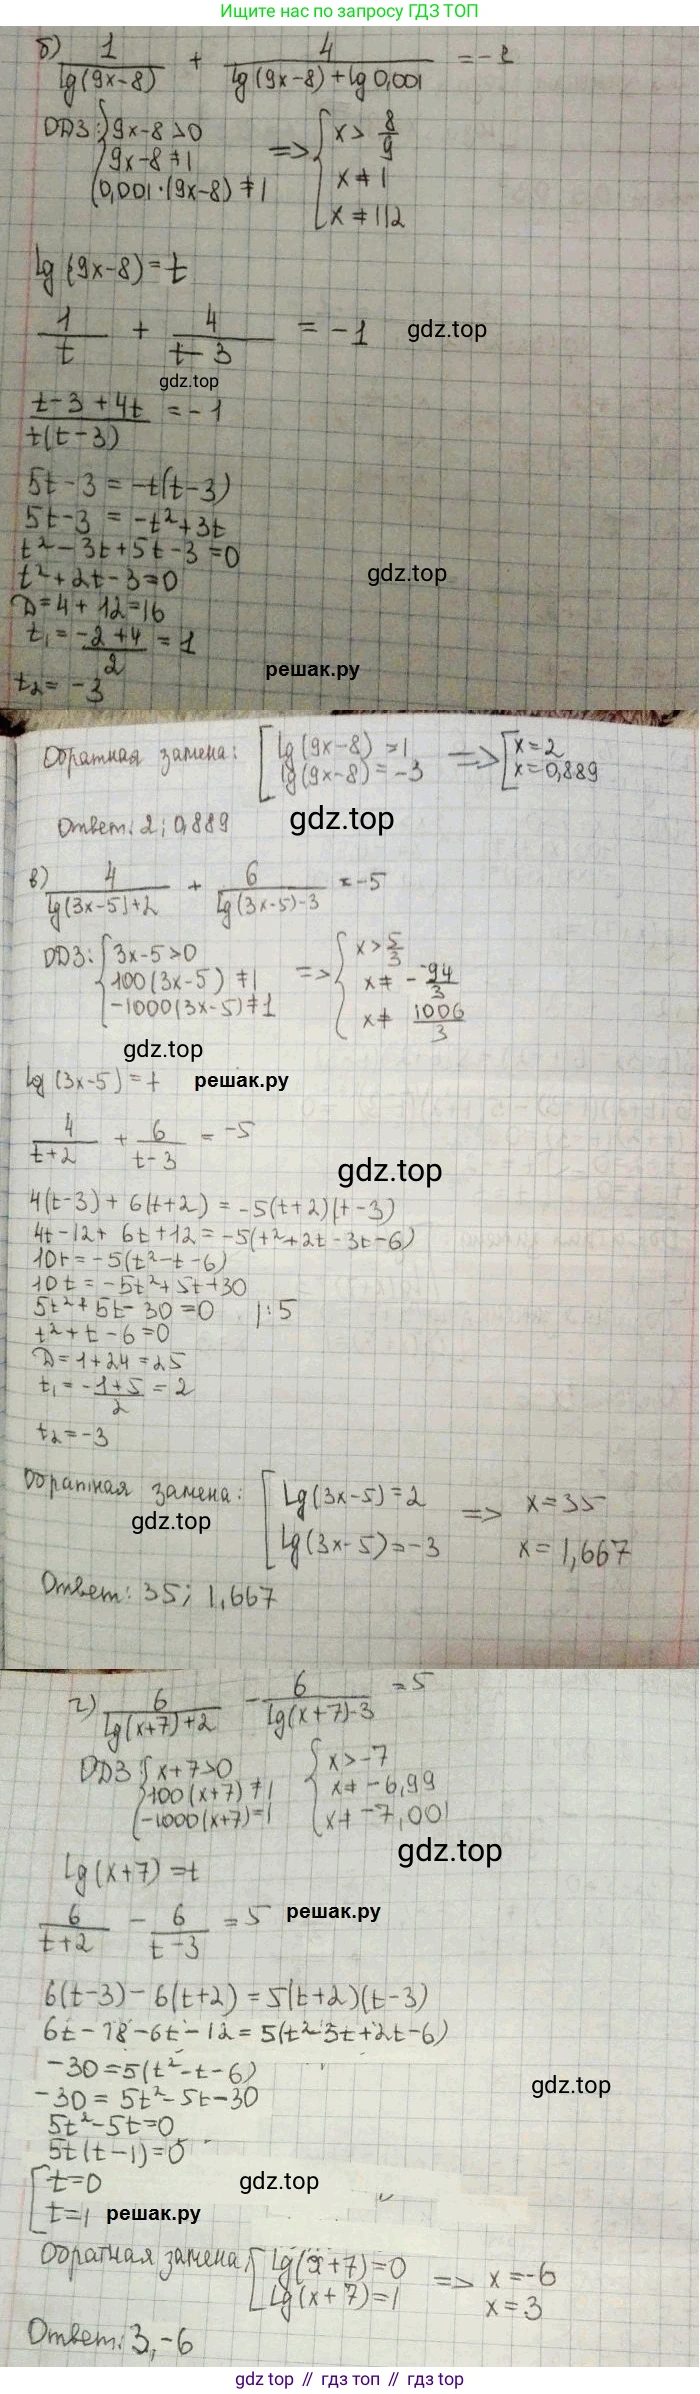 Ищите нас по запросу ГДЗ ТОП
б) 1/lg(9x-8) + 4/(lg(9x-8)+lg0,001) = -1
ОДЗ: { 9x-8>0
9x-8≠1
0,001·(9x-8)≠1
=> { x > 8/9
x≠1
x≠112
lg(9x-8)=t
1/t + 4/(t-3) = -1
gdz.top
gdz.top
(t-3+4t)/(t(t-3)) = -1
5t-3=-t(t-3)
5t-3=-t²+3t
t²-3t+5t-3=0
gdz.top
t²+2t-3=0
D=4+12=16
t₁=(-2+4)/2=1
решак.ру
t₂=-3
Обратная замена: [ lg(9x-8)=1
lg(9x-8)=-3
=> [ x=2
x=0,889
gdz.top
Ответ: 2; 0,889
в) 4/(lg(3x-5)+2) + 6/(lg(3x-5)-3) = -5
ОДЗ: { 3x-5>0
100(3x-5)≠1
-1000(3x-5)≠1
=> { x > 5/3
x≠ - -94/3
x≠ 1006/3
gdz.top
lg(3x-5)=t
решак.ру
4/(t+2) + 6/(t-3) = -5
gdz.top
4(t-3)+6(t+2)=-5(t+2)(t-3)
4t-12+6t+12=-5(t²+2t-3t-6)
10t=-5(t²-t-6)
10t=-5t²+5t+30
5t²+5t-30=0 |:5
t²+t-6=0
D=1+24=25
t₁=(-1+5)/2=2
t₂=-3
Обратная замена: [ lg(3x-5)=2
lg(3x-5)=-3
=> x=35
x=1,667
gdz.top
Ответ: 35; 1,667
г) 6/(lg(x+7)+2) - 6/(lg(x+7)-3) = 5
ОДЗ { x+7>0
100(x+7)≠1
-1000(x+7)=1
{ x>-7
x≠-6,99
x≠-7,001
gdz.top
lg(x+7)=t
6/(t+2) - 6/(t-3) = 5
решак.ру
6(t-3)-6(t+2)=5(t+2)(t-3)
6t-18-6t-12=5(t²-3t+2t-6)
-30=5(t²-t-6)
-30=5t²-5t-30
gdz.top
5t²-5t=0
5t(t-1)=0
[ t=0
t=1
gdz.top
решак.ру
Обратная замена: [ lg(x+7)=0
lg(x+7)=1
=> x=-6
x=3
Ответ: 3, -6
gdz top // гдз топ // gdz.top